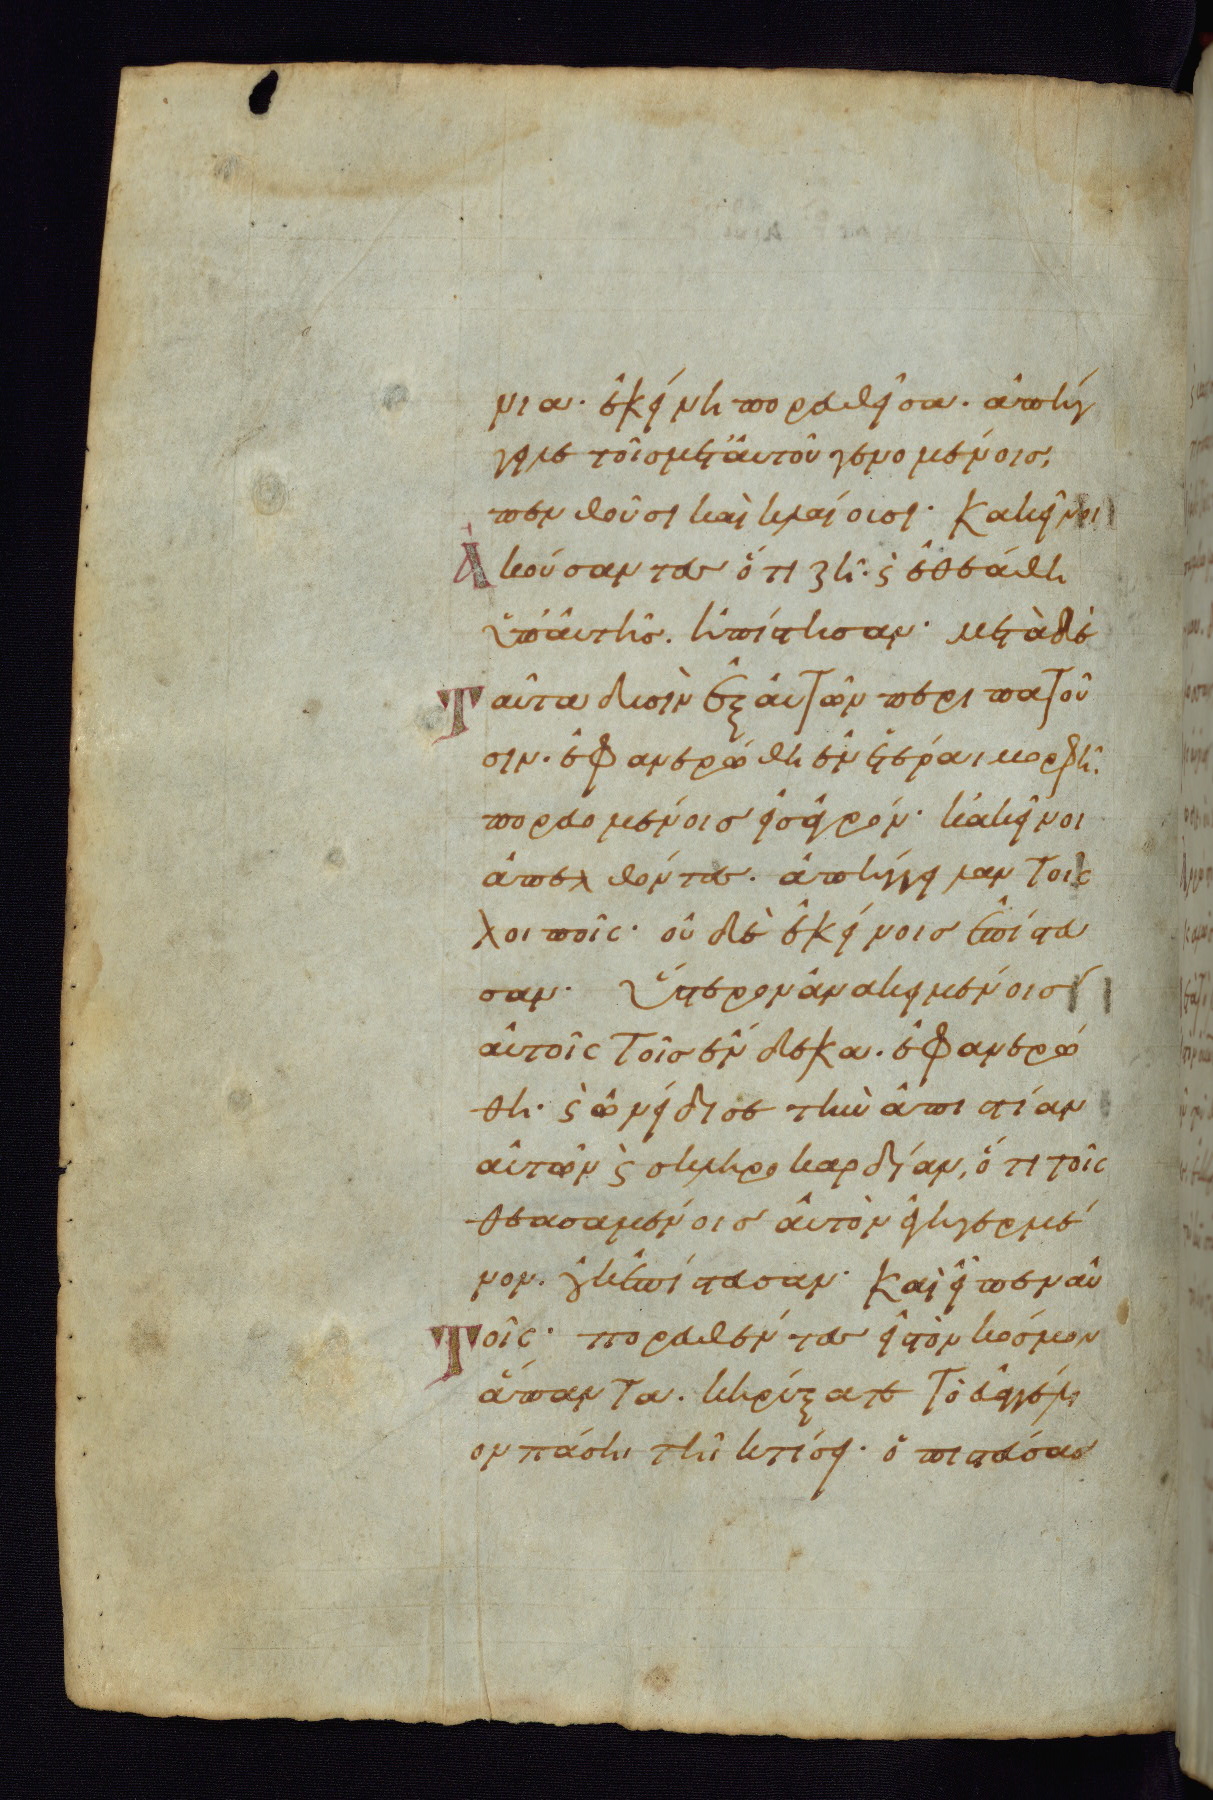 μόνια· ἐκείνη πορευθεῖσα· ἀπήγ
γειλε τοῖς μετ' αὐτοῦ γενομένοις,
πενθοῦσι καὶ κλαίουσι· κακεῖνοι
Ἀκούσαντες ὅτι ζῆ· ϗ ἐθεάθη
ὑπ' αὐτῆς. ἠπίστησαν· μετὰ δὲ
Ταῦτα δυσὶν ἐξ αὐτῶν περιπατοῦ
σιν· ἐφανερώθη ἐν ἑτέραι μορφῆ·
πορευομένοις εἰς ἀγρόν· κἀκεῖνοι
ἀπελθόντες· ἀπήγγειλαν τοῖς
λοιποῖς· οὐδὲ ἐκείνοις ἐπίστευ
σαν· Ὕστερον ἀνακειμένοις
αὐτοῖς τοῖς ἕνδεκα· ἐφανερώ
θη· ϗ ὠνείδισε τὴν ἀπιστίαν
αὐτῶν ϗ σκληροκαρδίαν, ὅτι τοῖς
θεασαμένοις αὐτὸν ἐγηγερμέ
νον· οὐκ ἐπίστευσαν· Καὶ εἶπεν αὐ
Τοῖς· πορευθέντες εἰς τὸν κόσμον
ἅπαντα· κηρύξατε τὸ εὐαγγέλι
ον πάση τῆ κτίσει· ὁ πιστεύσας